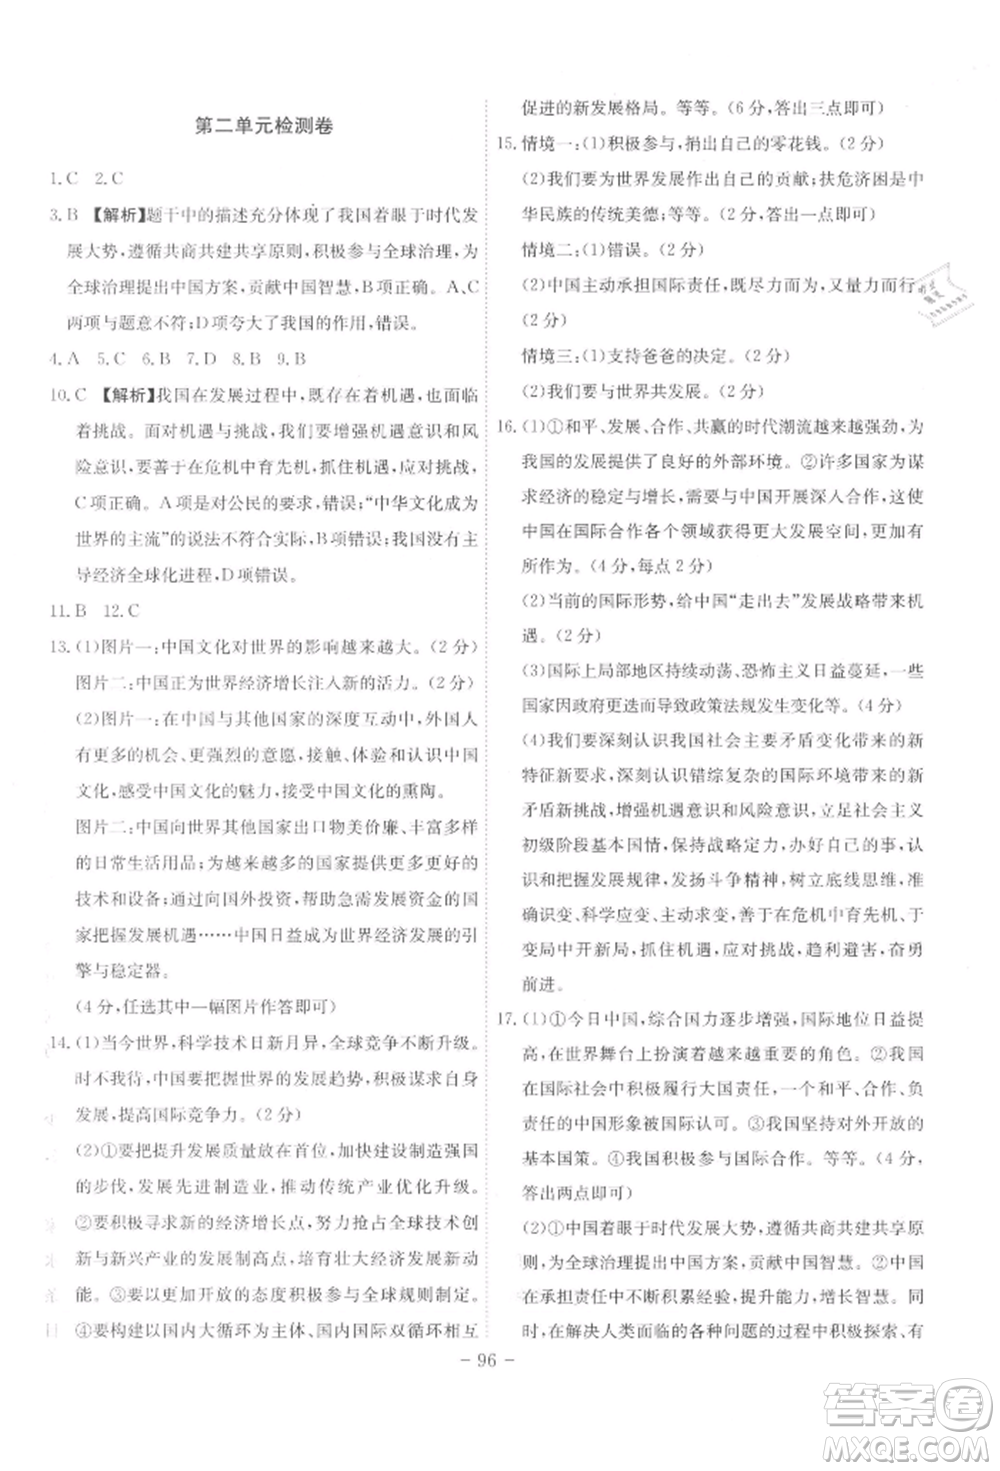 第二单元检测卷
1.C 2.C
3.B 【解析】题干中的描述充分体现了我国着眼于时代发
展大势，遵循共商共建共享原则，积极参与全球治理，为
全球治理提出中国方案，贡献中国智慧，B项正确。A、C
两项与题意不符；D项夸大了我国的作用，错误。
4.A 5.C 6.B 7.D 8.B 9.B
10.C 【解析】我国在发展过程中，既存在着机遇，也面临
着挑战。面对机遇与挑战，我们要增强机遇意识和风
险意识，要善于在危机中育先机，抓住机遇，应对挑战，
C项正确。A项是对公民的要求，错误；“中华文化成为
世界的主流”的说法不符合实际，B项错误；我国没有主
导经济全球化进程，D项错误。
11.B 12.C
13.(1)图片一：中国文化对世界的影响越来越大。(2分)
图片二：中国正为世界经济增长注入新的活力。(2分)
(2)图片一：在中国与其他国家的深度互动中，外国人
有更多的机会、更强烈的意愿，接触、体验和认识中国
文化，感受中国文化的魅力，接受中国文化的熏陶。
图片二：中国向世界其他国家出口物美价廉、丰富多样
的日常生活用品；为越来越多的国家提供更多更好的
技术和设备；通过国外投资，帮助急需发展资金的国
家把握发展机遇……中国日益成为世界经济发展的引
擎与稳定器。
(4分，任选其中一幅图片作答即可)
14.(1)当今世界，科学技术日新月异，全球竞争不断升级。
时不我待，中国要把握世界的发展趋势，积极谋求自身
发展，提高国际竞争力。(2分)
(2)①要把提升发展质量放在首位，加快建设制造强国
的步伐，发展先进制造业，推动传统产业优化升级。
②要积极寻求新的经济增长点，努力抢占全球技术创
新与新兴产业的发展制高点，培育壮大经济发展新动
能。③要以更加开放的态度积极参与全球规则制定。
④要构建以国内大循环为主体、国内国际双循环相互
促进的新发展格局。等等。(6分，答出三点即可)
15.情境一：(1)积极参与，捐出自己的零花钱。(2分)
(2)我们要为世界发展作出自己的贡献；扶危济困是中
华民族的传统美德；等等。(2分，答出一点即可)
情境二：(1)错误。(2分)
(2)中国主动承担国际责任，既尽力而为，又量力而行。
(2分)
情境三：(1)支持爸爸的决定。(2分)
(2)我们要与世界共发展。(2分)
16.(1)①和平、发展、合作、共赢的时代潮流越来越强劲，为
我国的发展提供了良好的外部环境。②许多国家为谋
求经济的稳定与增长，需要与中国开展深入合作，这使
中国在国际合作各个领域获得更大发展空间，更加有
所作为。(4分，每点2分)
(2)当前的国际形势，给中国“走出去”发展战略带来机
遇。(2分)
(3)国际上局部地区持续动荡、恐怖主义日益蔓延，一些
国家因政府更迭而导致政策法规发生变化等。(4分)
(4)我们要深刻认识我国社会主要矛盾变化带来的新
特征新要求，深刻认识错综复杂的国际环境带来的新
矛盾新挑战，增强机遇意识和风险意识，立足社会主义
初级阶段基本国情，保持战略定力，办好自己的事，认
识和把握发展规律，发扬斗争精神，树立底线思维，准
确识变、科学应变、主动求变，善于在危机中育先机、于
变局中开新局，抓住机遇，应对挑战，趋利避害，奋勇
前进。
17.(1)①今日中国，综合国力逐步增强，国际地位日益提
高，在世界舞台上扮演着越来越重要的角色。②我国
在国际社会中积极履行大国责任，一个和平、合作、负
责任的中国形象被国际认可。③我国坚持对外开放的
基本国策。④我国积极参与国际合作。等等。(4分，
答出两点即可)
(2)①中国着眼于时代发展大势，遵循共商共建共享原
则，为全球治理提出中国方案，贡献中国智慧。②我国
在承担责任中不断积累经验，提升能力，增长智慧。同
时，在解决人类面临的各种问题的过程中积极探索、有
- 96 -
答案圈
MXQE.COM